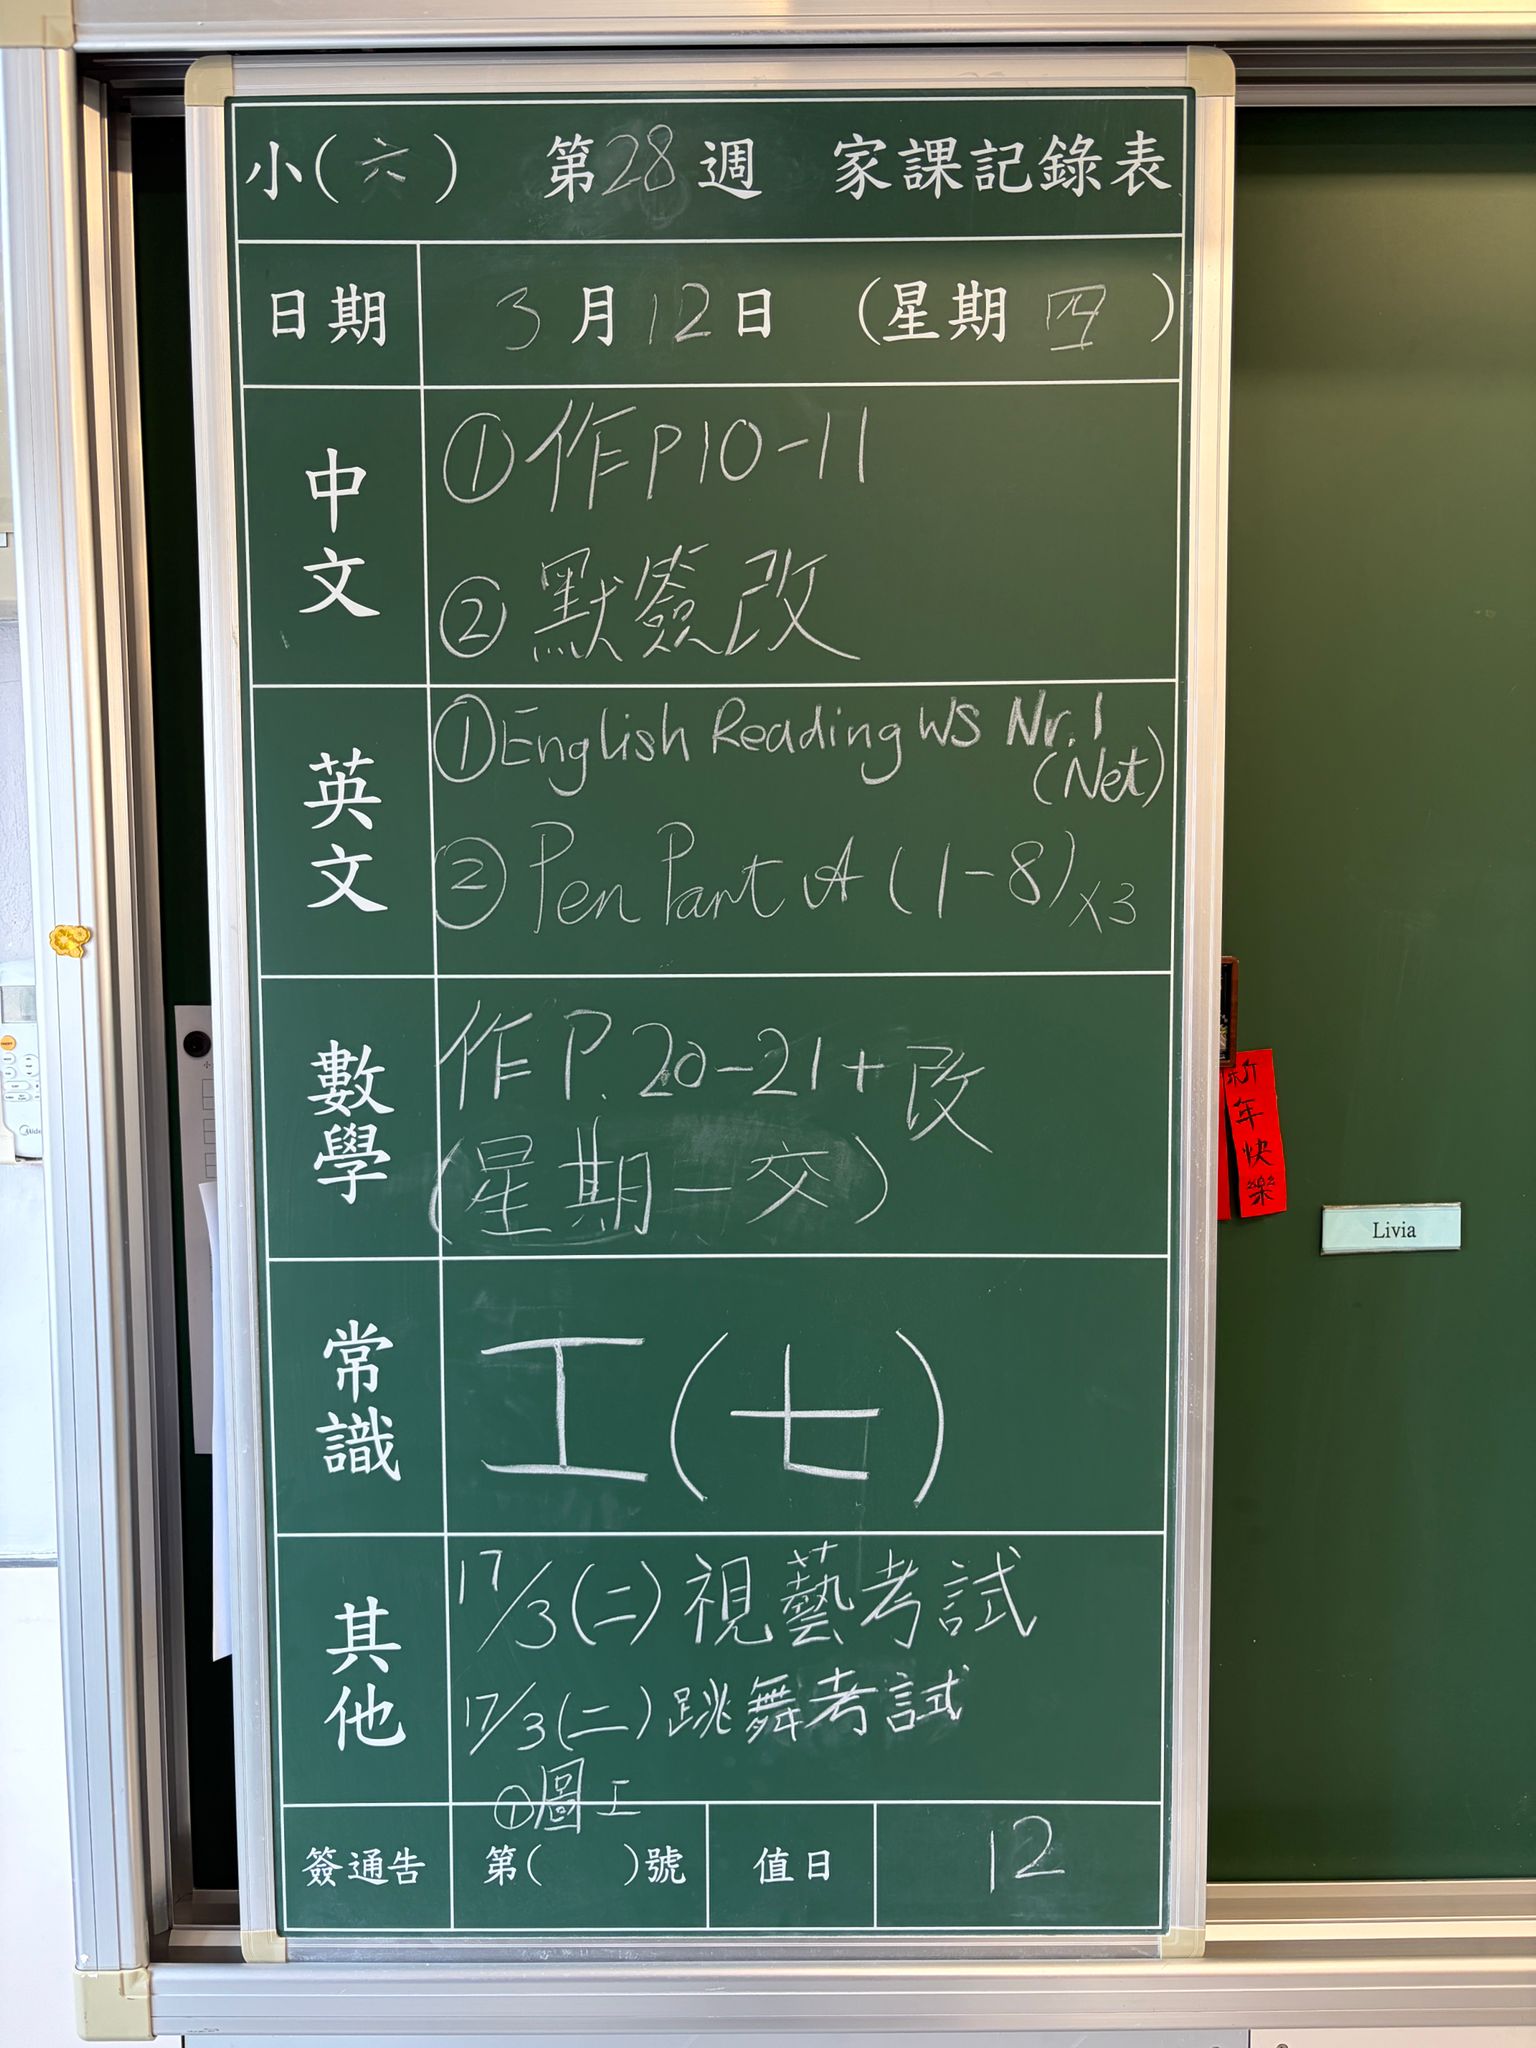 小(六) 第28週 家課記錄表
日期 3月12日 (星期四)
中文
①作P10-11
②默簽改
英文
①English Reading WS Nr.1
(Net)
②Pen Part A (1-8)x3
數學
作P.20-21+改
(星期一交)
常識
工(七)
其他
17/3(二)視藝考試
17/3(二)跳舞考試
①圖工
簽通告 第( )號 值日 12
新年快樂
Livia
Midea